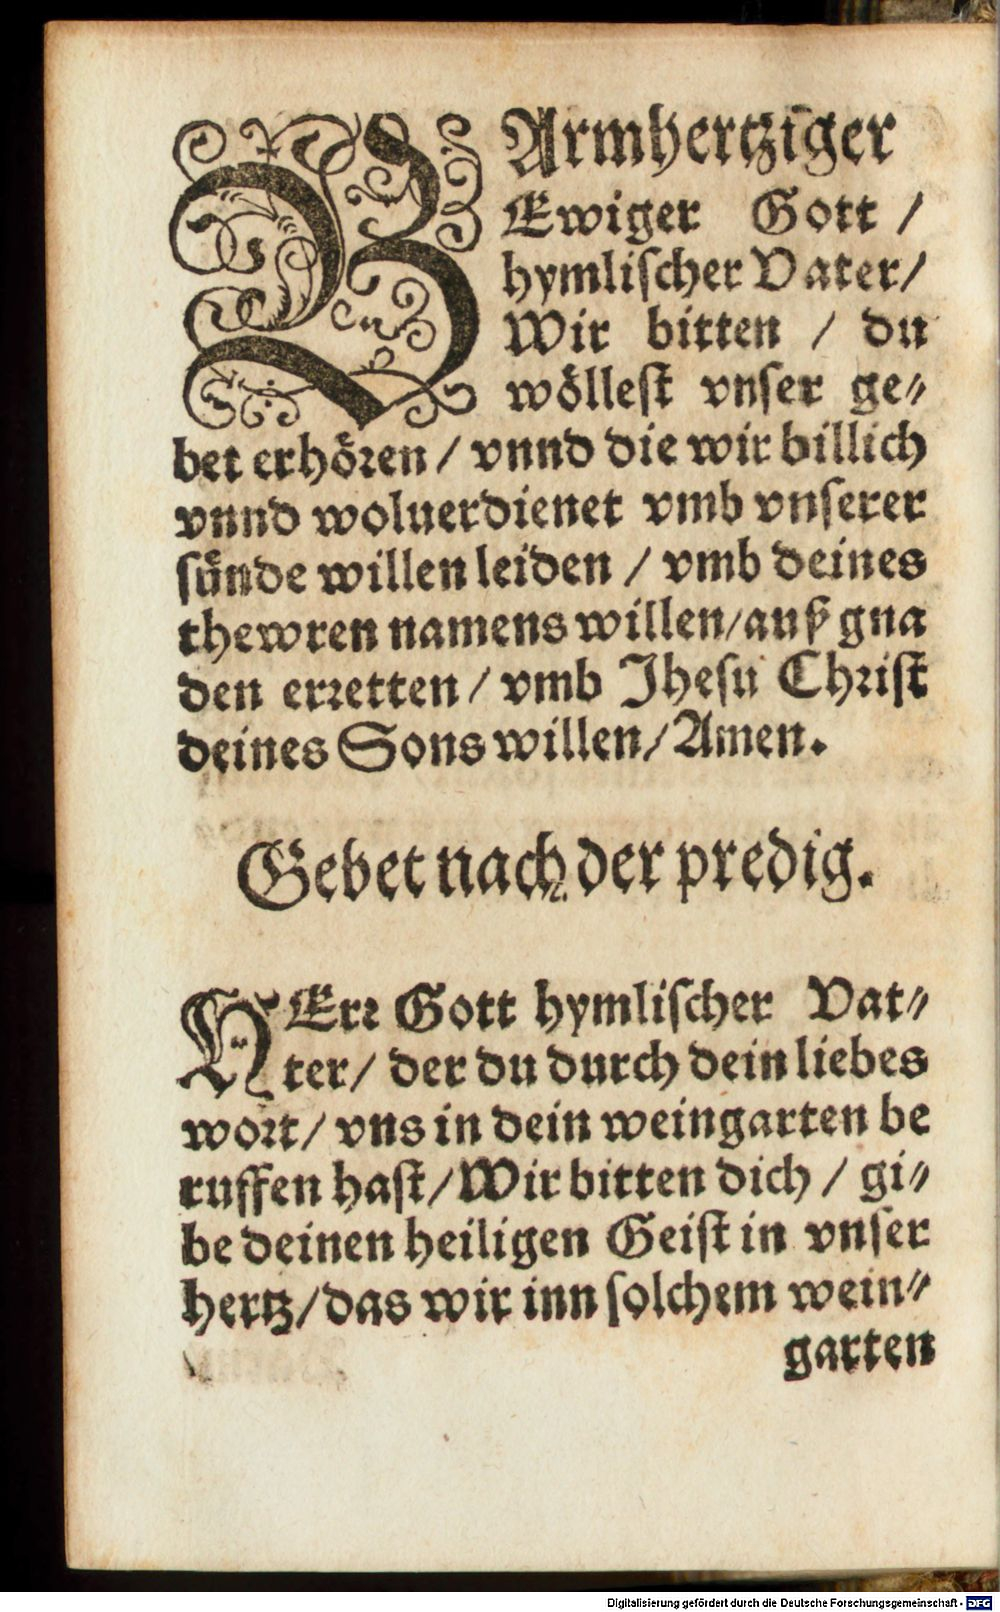 BArmhertziger
Ewiger Gott /
hymlischer Vater/
Wir bitten / du
wöllest vnser ge⸗
bet erhören / vnnd die wir billich
vnnd woluerdienet vmb vnserer
sünde willen leiden / vmb deines
thewren namens willen/auß gna
den erretten / vmb Jhesu Christ
deines Sons willen/Amen.
Gebet nach der predig.
HErr Gott hymlischer Vat⸗
ter/ der du durch dein liebes
wort/ vns in dein weingarten be
ruffen hast/Wir bitten dich / gi⸗
be deinen heiligen Geist in vnser
hertz/das wir inn solchem wein⸗
garten
Digitalisierung gefördert durch die Deutsche Forschungsgemeinschaft - DFG